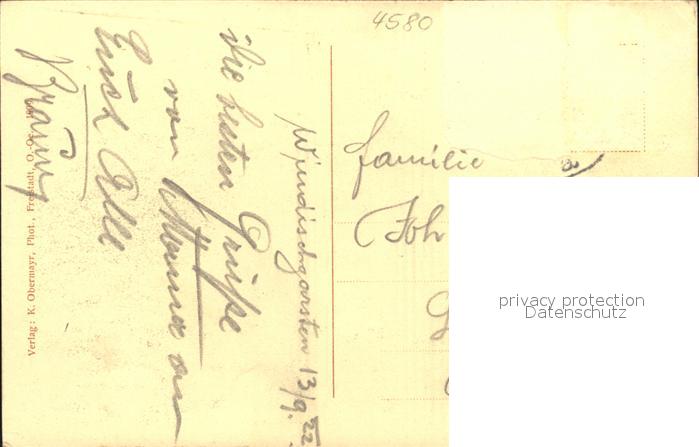 4580
Windischgarsten 13/9. 22
die besten Grüße
von Mama an
Euch Alle
Familie
Joh
Verlag: K. Obermayr, Phot., Freistadt, O.-Oe.
privacy protection
Datenschutz